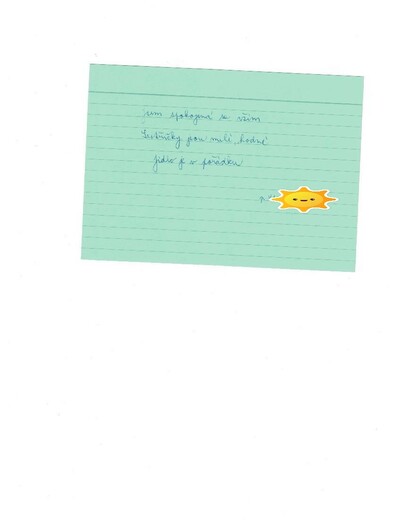 jsem spokojená se vším
Sestřičky jsou milé, hodné
jídlo je v pořádku